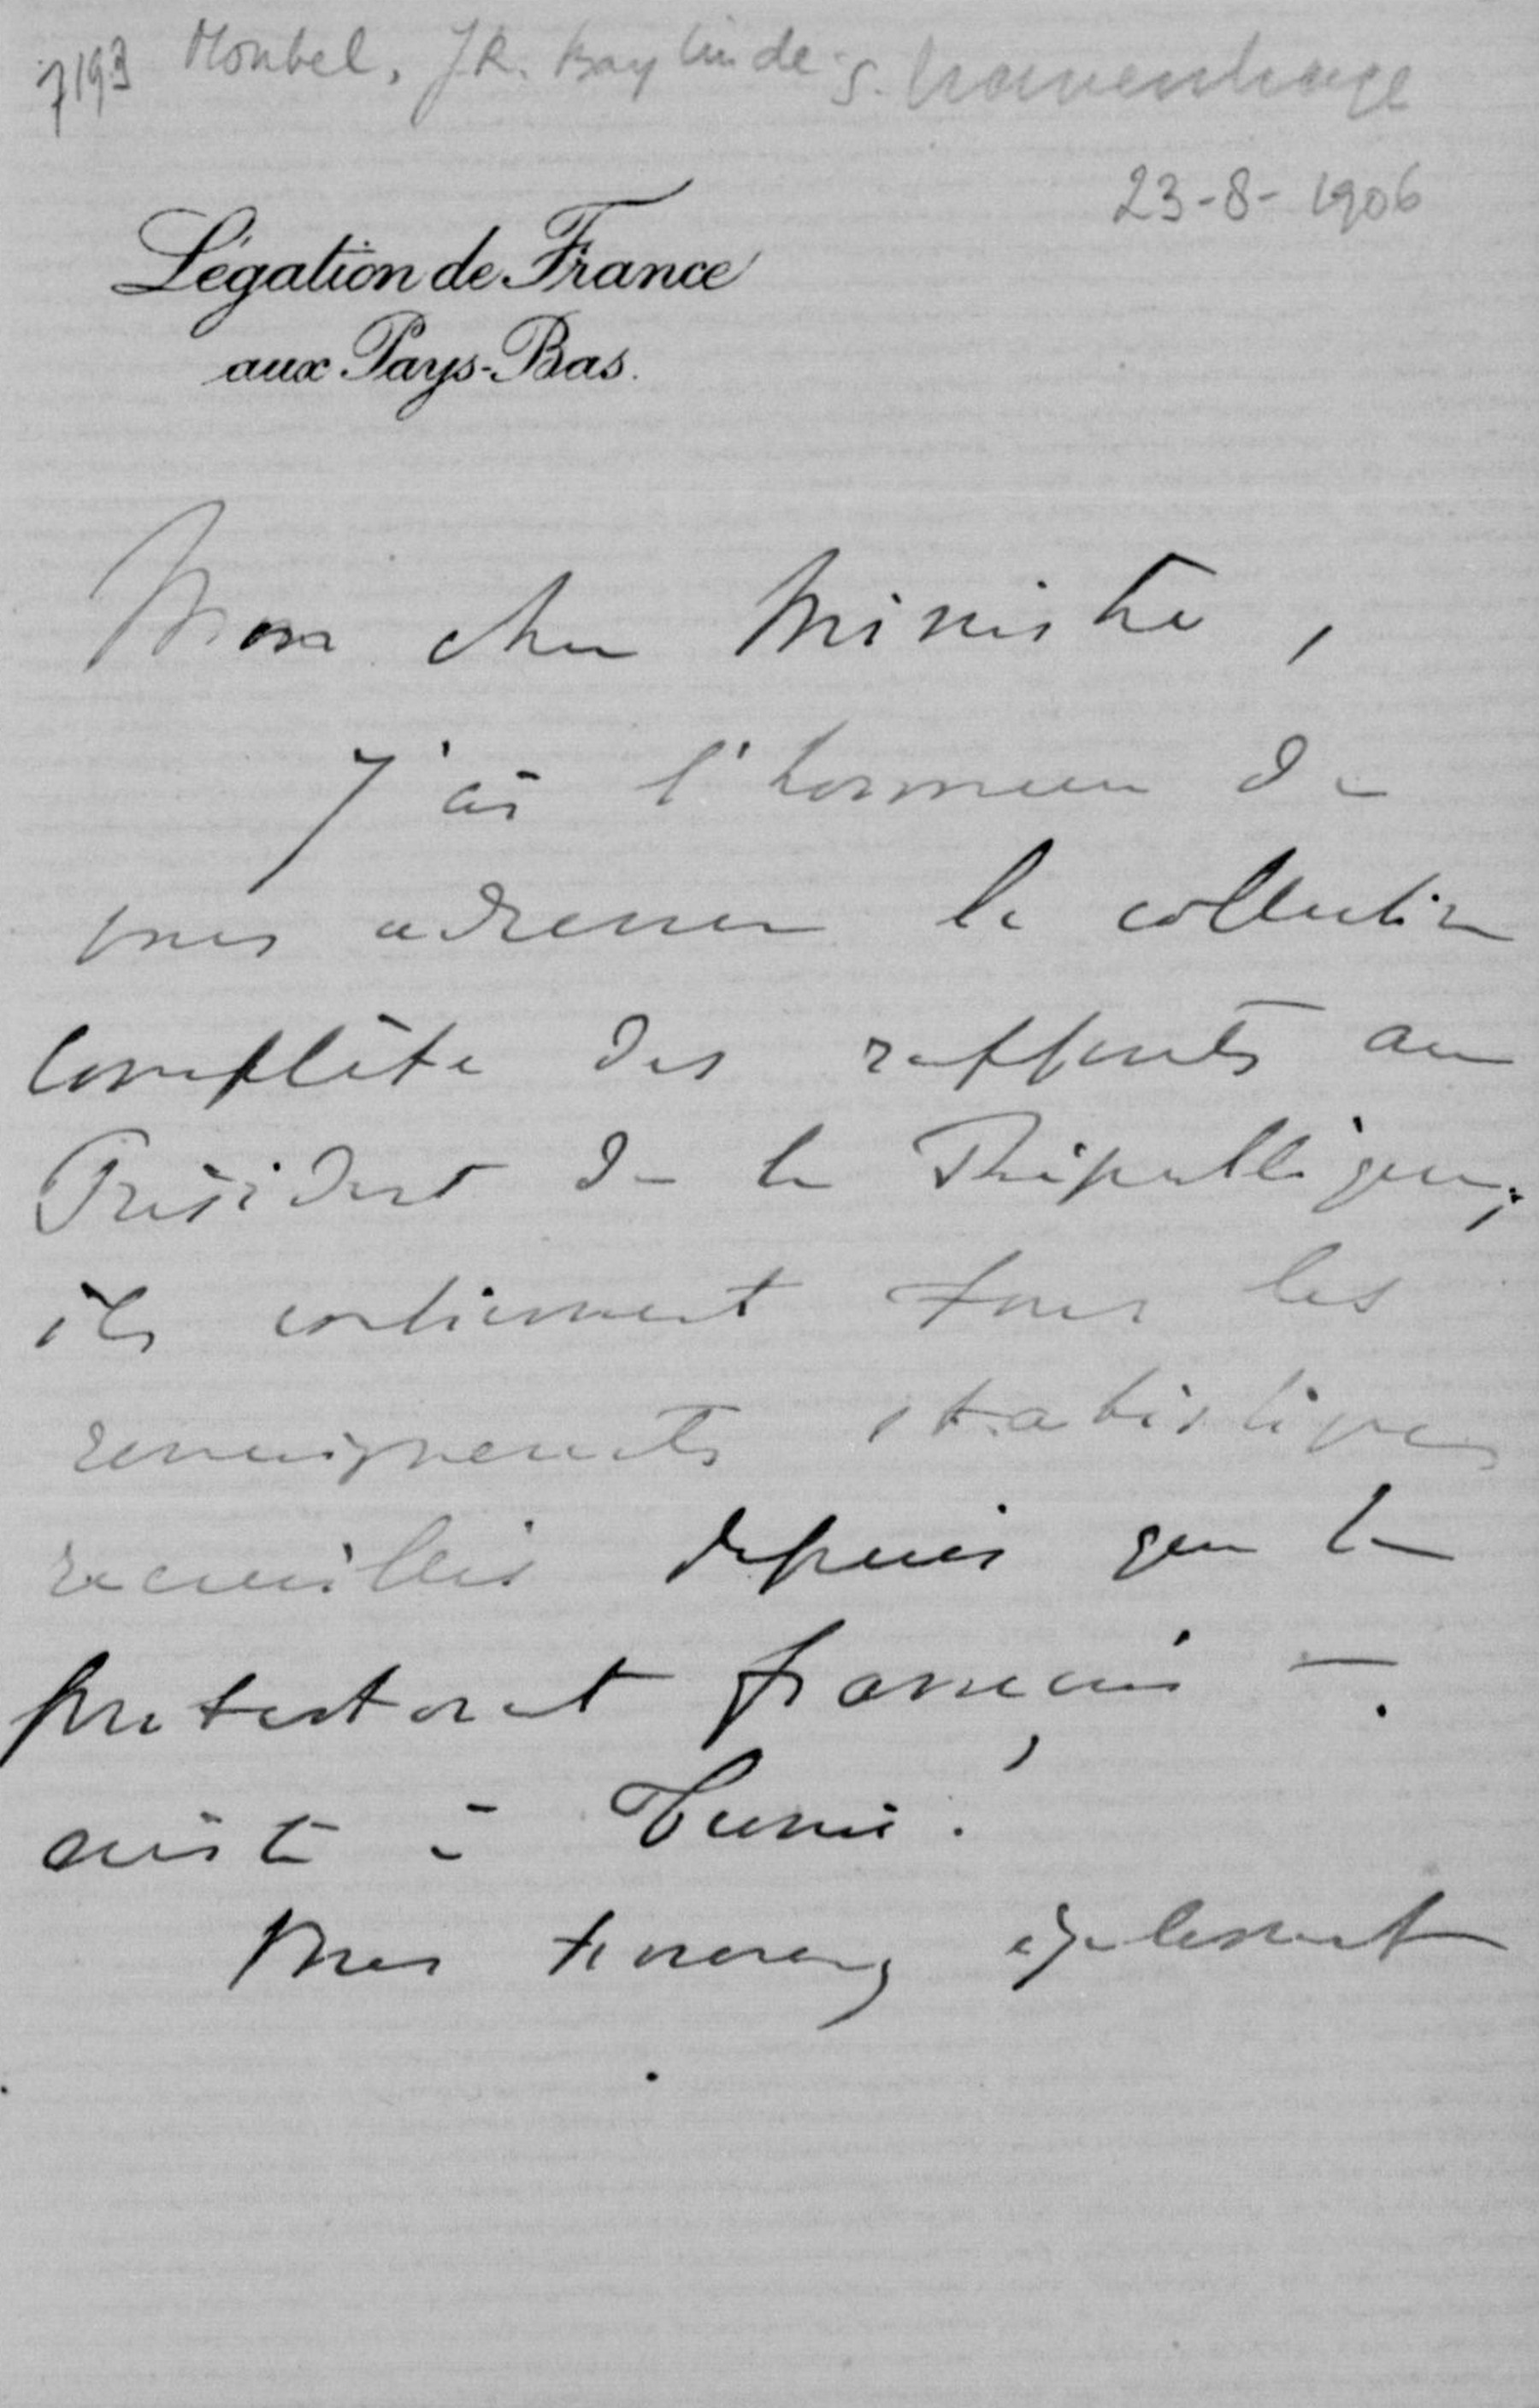 7193 Monbel, J.R. Baylin de s. Gravenhage
23-8-1906
Légation de France
aux Pays-Bas.
Mon cher Ministre,
J'ai l'honneur de
vous adresser la collection
complète des rapports au
Président de la République;
ils contiennent tous les
renseignements statistiques
recueillis depuis que le
protectorat français
existe à Tunis.
Vous trouverez également